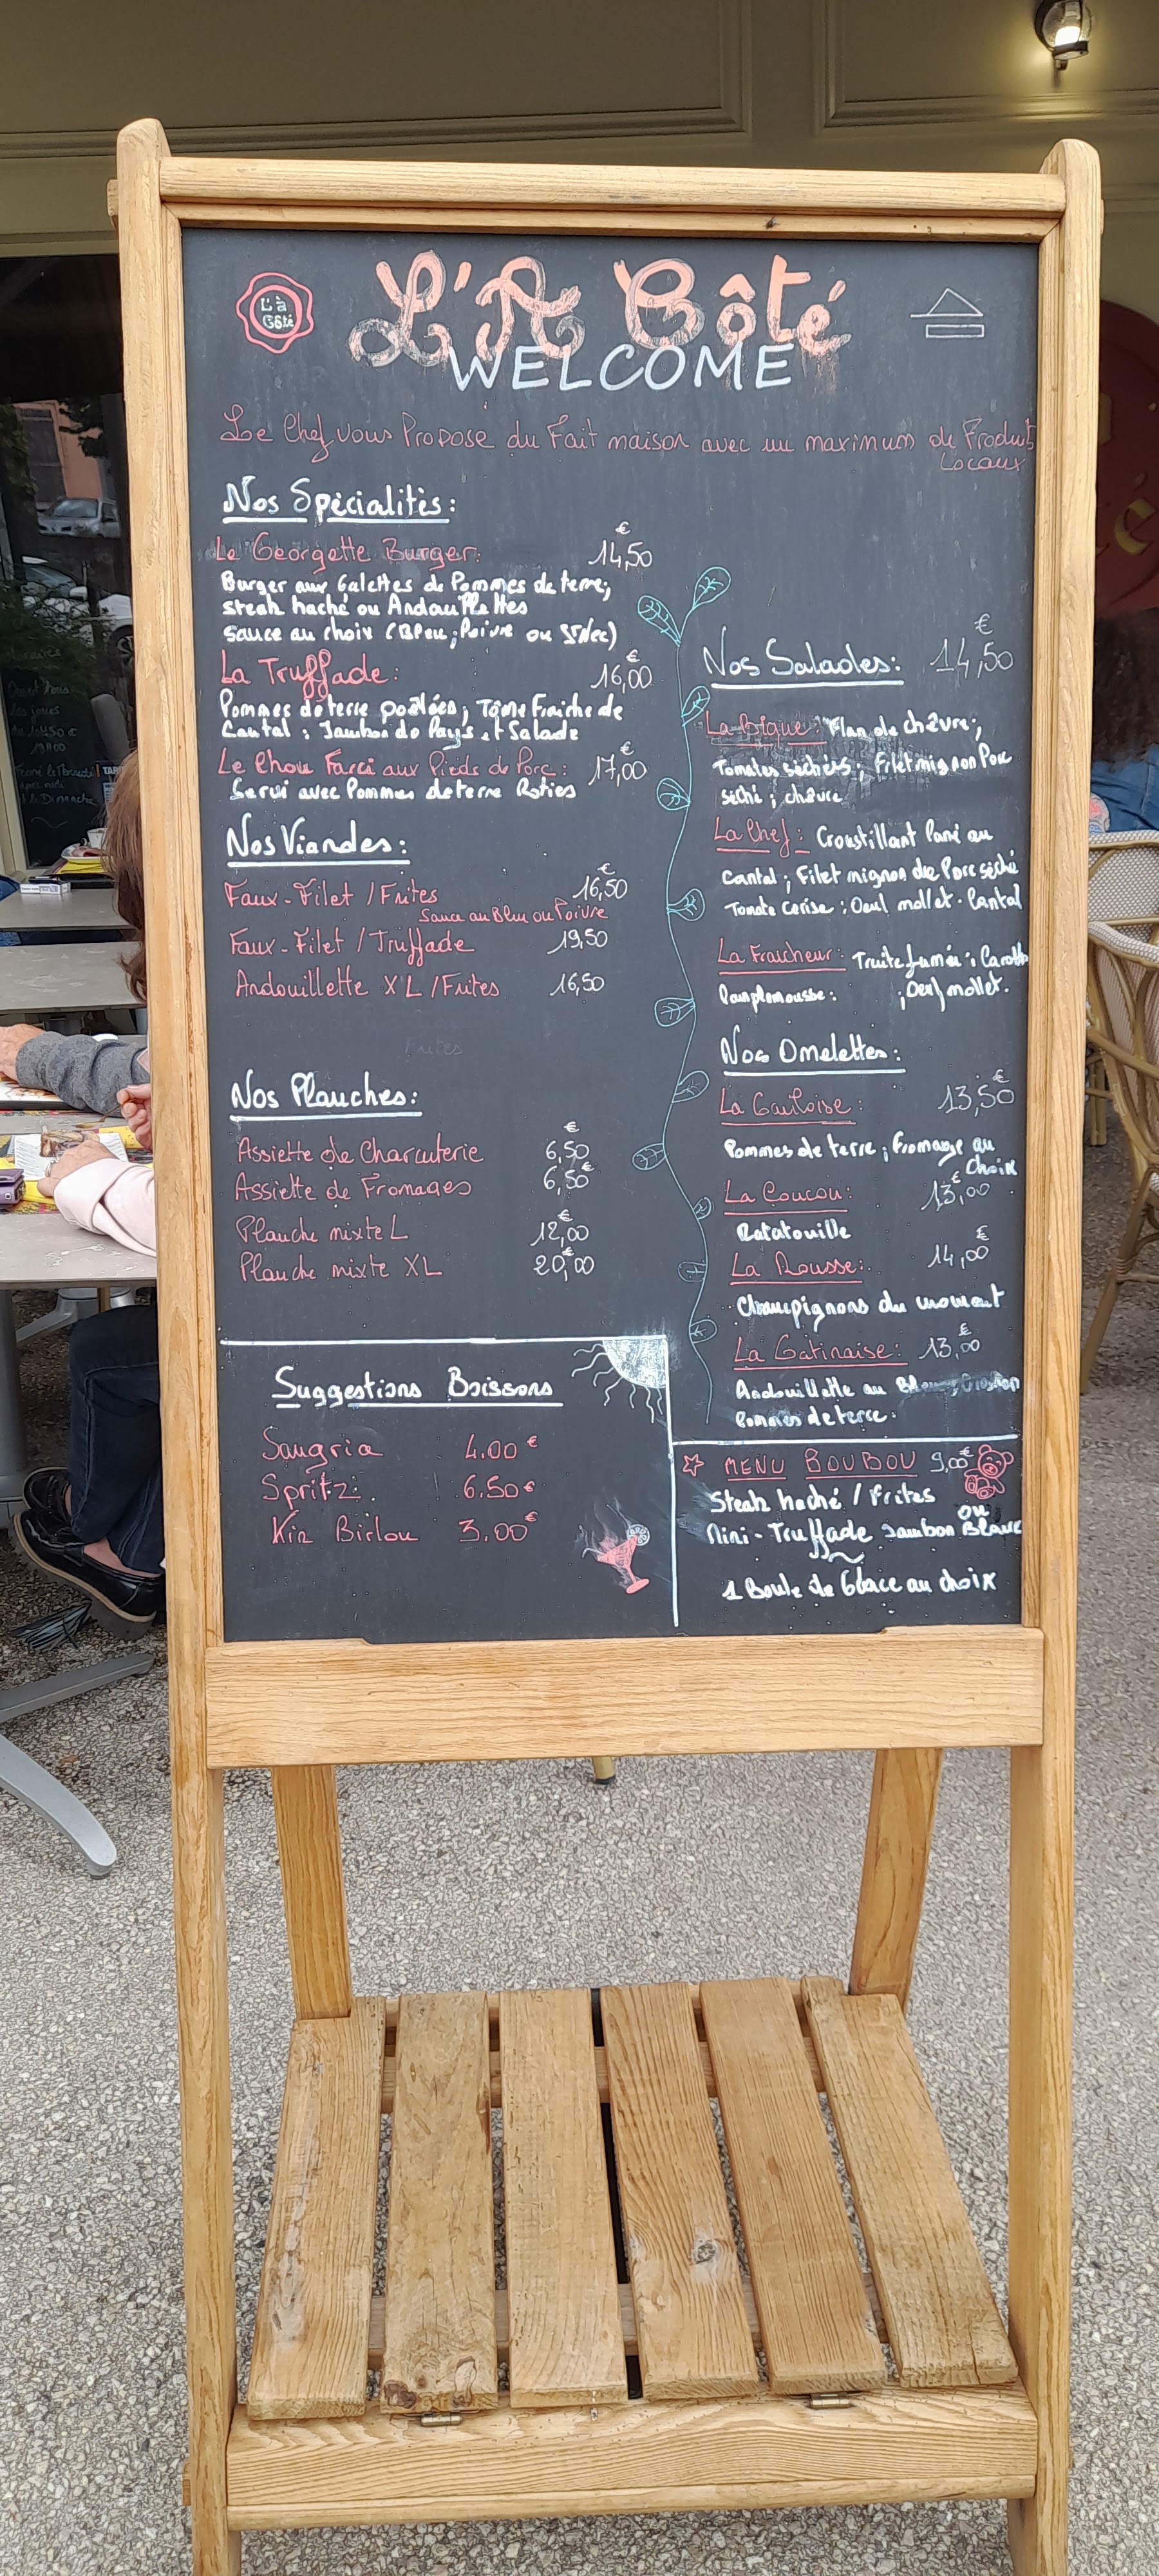 L'à
Côté
L'A Côté
WELCOME
Le Chef vous Propose du Fait maison avec un maximum de Produit
Locaux
Nos Spécialitès:
Le Georgette Burger: 14,50 €
Burger aux Galettes de Pommes de terre;
steak haché ou Andouillettes
sauce au choix (Bleu; Poivre ou St Nec)
La Truffade: 16,00 €
Pommes de terre poêlées; Tome Fraiche de
Cantal; Jambon de Pays et Salade
Le Chou Farci aux Pieds de Porc: 17,00 €
Servi avec Pommes de terre Roties
Nos Viandes:
Faux-Filet / Frites 16,50 €
Sauce au Bleu ou Poivre
Faux-Filet / Truffade 19,50
Andouillette XL / Frites 16,50
Frites
Nos Planches:
Assiette de Charcuterie 6,50 €
Assiette de Fromages 6,50 €
Planche mixte L 12,00 €
Planche mixte XL 20,00 €
Suggestions Boissons
Sangria 4.00 €
Spritz: 6.50 €
Kir Birlou 3.00 €
Nos Salades: 14,50 €
La Bique: Flan de chèvre;
Tomates séchées; Filet mignon Porc
séché; chèvre
La Chef: Croustillant Pané au
Cantal; Filet mignon de Porc séché
Tomate Cerise; Oeuf mollet. Cantal
La Fraicheur: Truite fumée; Carotte
Pamplemousse: ;Oeuf mollet.
Nos Omelettes:
La Gauloise: 13,50 €
Pommes de terre; Fromage au
Choix
La Coucou: 13,00 €
Ratatouille
La Rousse: 14,00 €
Champignons du moment
La Gatinaise: 13,00 €
Andouillette au
Pommes de terre.
MENU BOUBOU 9,00 €
Steak haché / Frites
ou
Mini-Truffade Jambon Blanc
1 Boule de Glace au choix